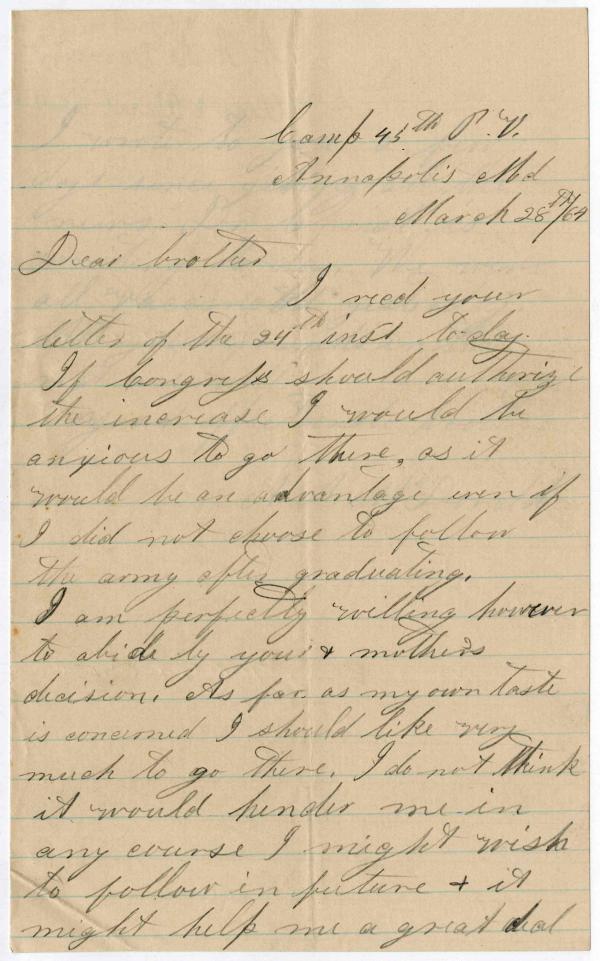 Camp 45th P. V.
Annapolis Md
March 28TH/64
Dear brother
I recd your
letter of the 24th inst to-day.
If Congress should authorize
the increase I would be
anxious to go there, as it
would be an advantage even if
I did not choose to follow
the army after graduating.
I am perfectly willing however
to abide by your & mothers
decision. As far as my own taste
is concerned I should like very
much to go there. I do not think
it would hender me in
any course I might wish
to follow in future & it
might help me a great deal